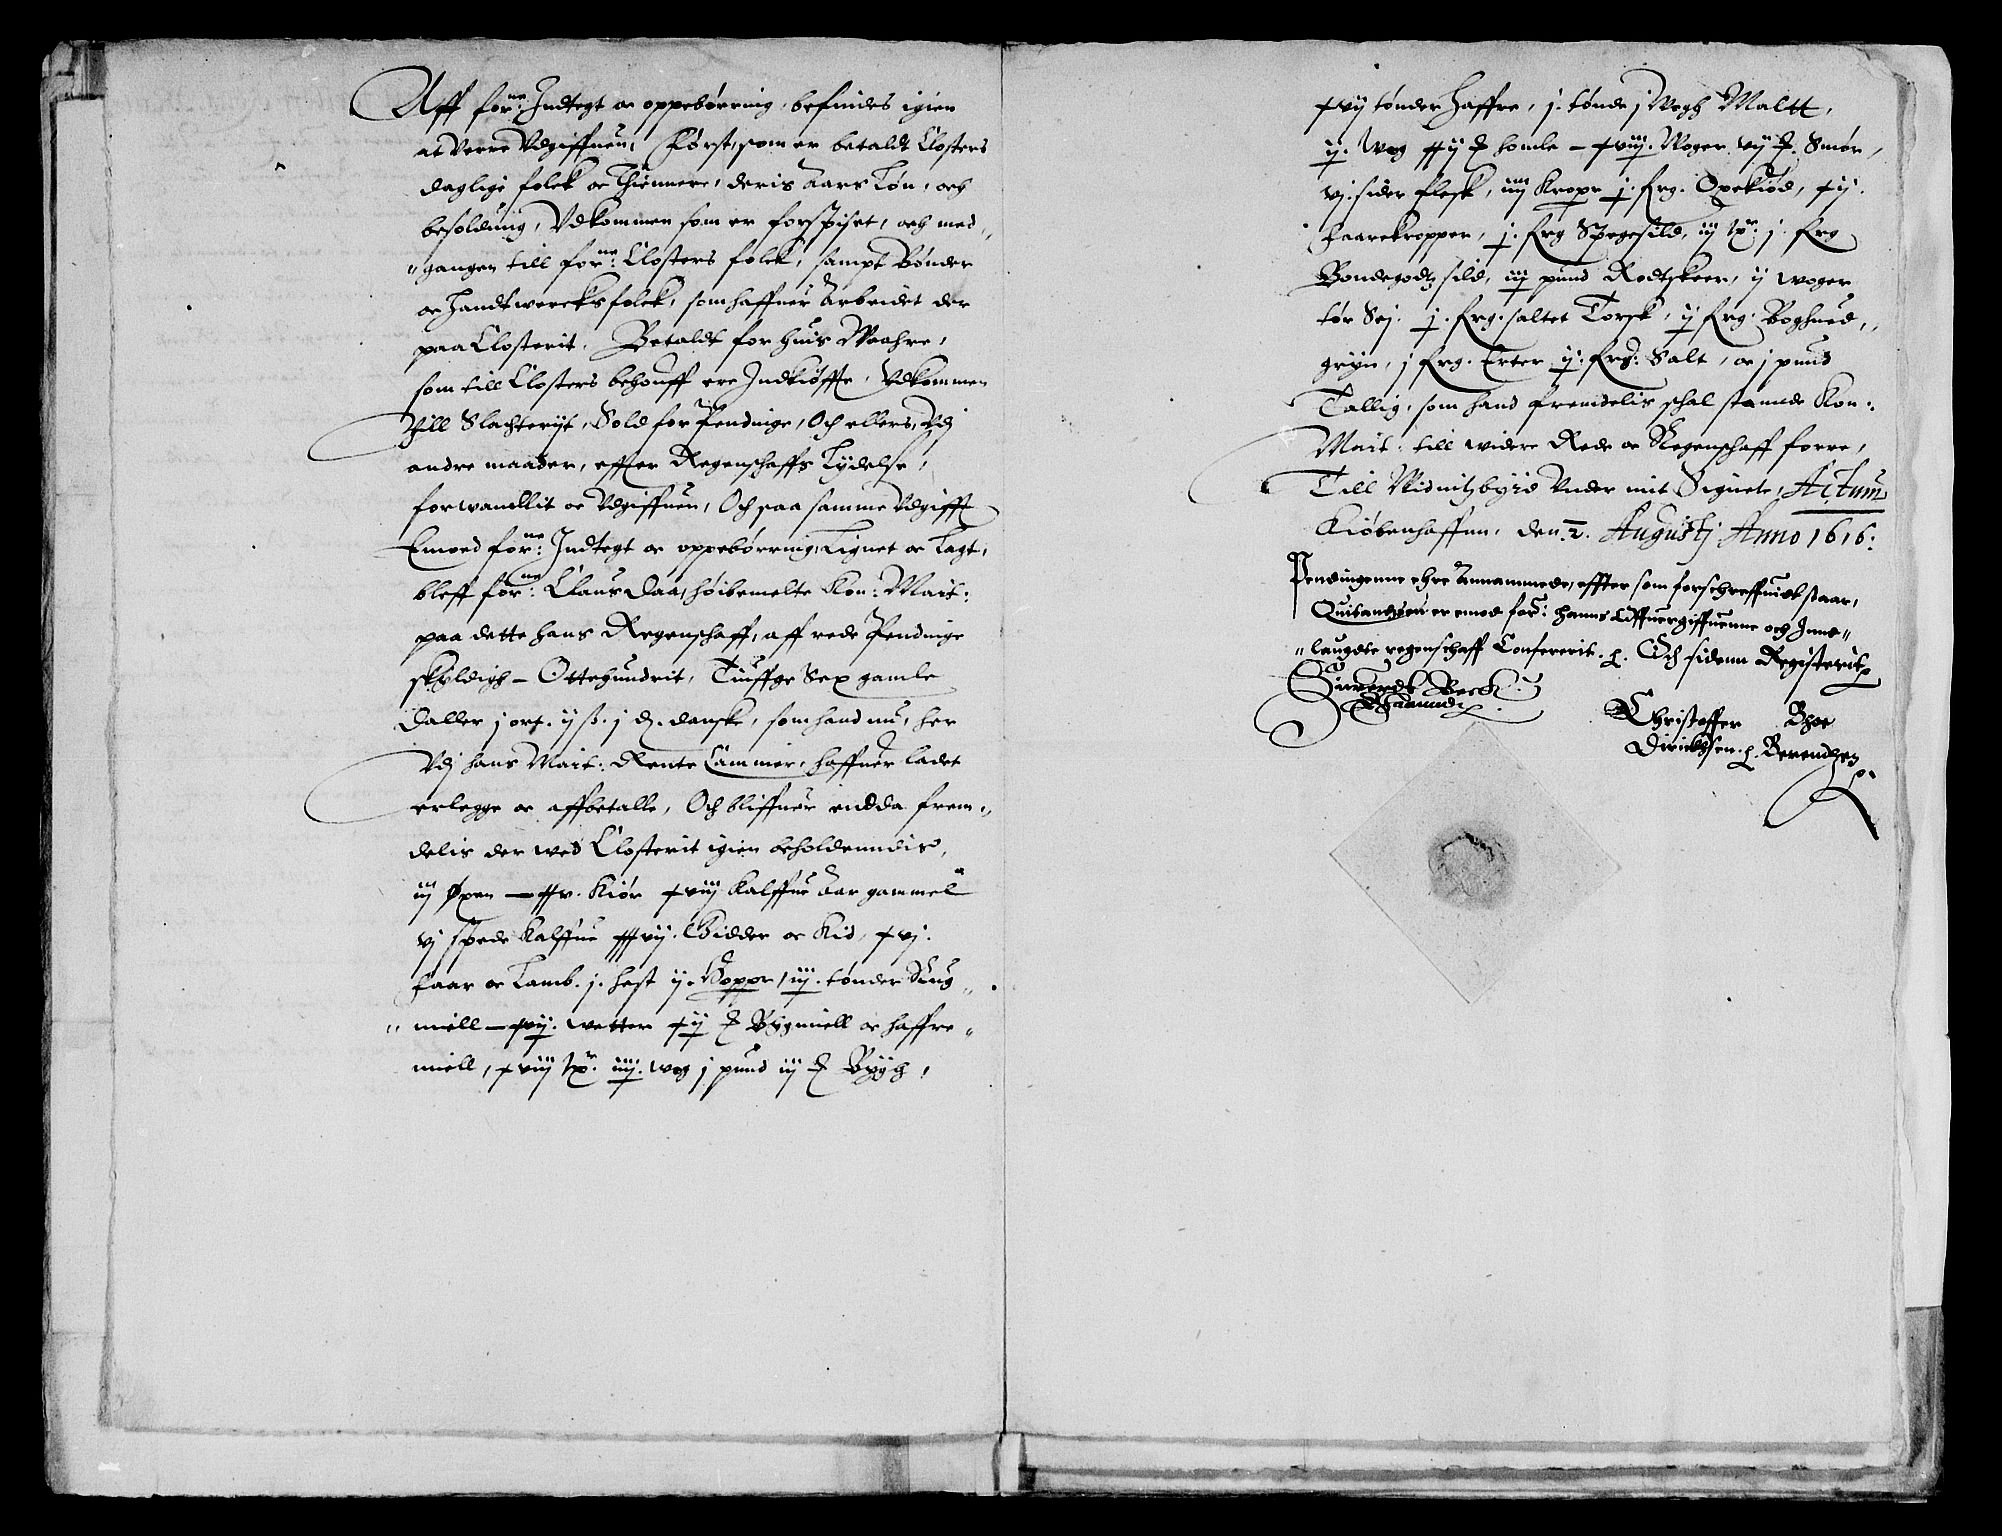 Aff forne: Indtegt oc oppebørring, befindes igien
at verre Udgiffuen, Først, som er betaldt Closters
daglige folck oc Thiennere, deris aars Løn, och
besolding, Udkommen som er forspiset, och med„
„gangen till forne: Closters folck, sampt Bønder
oc Handtwercksfolck, som haffuer arbeidet der
paa Closterit, Betaldt for huis Waahre,
som till Closters behouff ere Indkiøffte, Udkommen
till Slachterijt, Sold for Pendinge, Och ellers, Udj
andre maader, effter Regenschaffs Lydelse,
forwandlit oc Udgiffuen, Och paa samme Udgifft
Emod forne: Indtegt oc oppebørring, Lignet oc Lagt,
bleff forne: Claus Daa, høibemelte Kon: Mait:
paa dette hans Regenschaff, aff rede Pendinge
skyldigh – Ottehundrit, Tiuffge Sex gamle
Daller j ort. ij ß. j ₰. danske, som hand nu, her
Udj hans Mait: Rente Cammer, haffuer ladet
erlegge oc affbetalle, Och bliffuer endda frem„
delis der wed Closterit igien beholdenndis,
iij Øxen – xxv. Kiør xviij Kalffue Aar gammel
vj spede Kalffue xxxvij. Gidder oc Kid, xvj.
faar oc Lamb. j. hest ij. Hopper, iij. tønder Rug„
„miell – xvij. wetter xij ℔ Bygmiell oc haffre„
miell, xviij tr. iiij. wog j pund iij ℔ Bygh,
xvij tønder Haffre, j. tønde j Wegh Maltt,
ij. Wog xxij ℔ homle – xviij. Woger vij ℔. Smør,
vj. sider flesk, iiij Kroper j. frg. Oxekiød, xij.
faarekropper, j. frg Spegesild, iij tr. j. frg
Bondegodtz sild, iij pund Rodtskeer, ij woger
tør Sej. j. frg. saltet Torsk, ij frg. Boghued„
gryn, j frg. Erter ij. frg: Salt, oc j pund
Tallig, som hand fremdelis schal stannde Kon:
Mait: till widere Rede oc Regenschaff forre,
Till Vidnitzbyrd Under mit Signete, Actum
Kiøbenhaffun, den 2. Augustj Anno 1616:
Pendingenne ehre Annammede, effter som forschreffuidt staar,
Quitandsen er emod for: Hanns Offuergiffuenne och Inne„
„laugdte regenschaff Confererit. Och sidenn Registerit
Siuerdt Beck
Christoffer Bhoe
Dirichsen. Berendsen